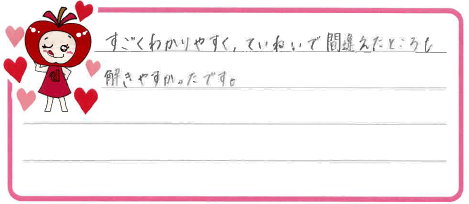 すごくわかりやすく、ていねいで間違えたところも
解きやすかったです。